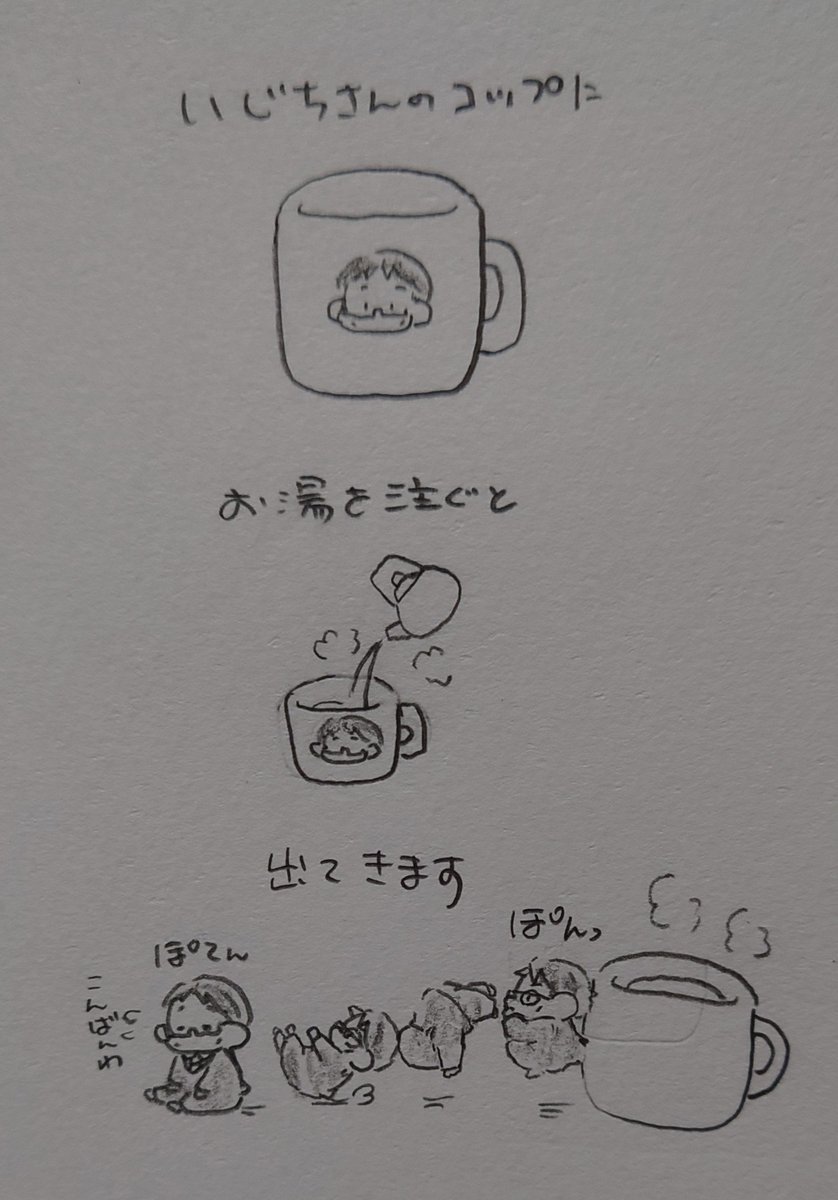 いじちさんのコップに
お湯を注ぐと
出てきます
ぽんっ
ぽてん
こんばんわ